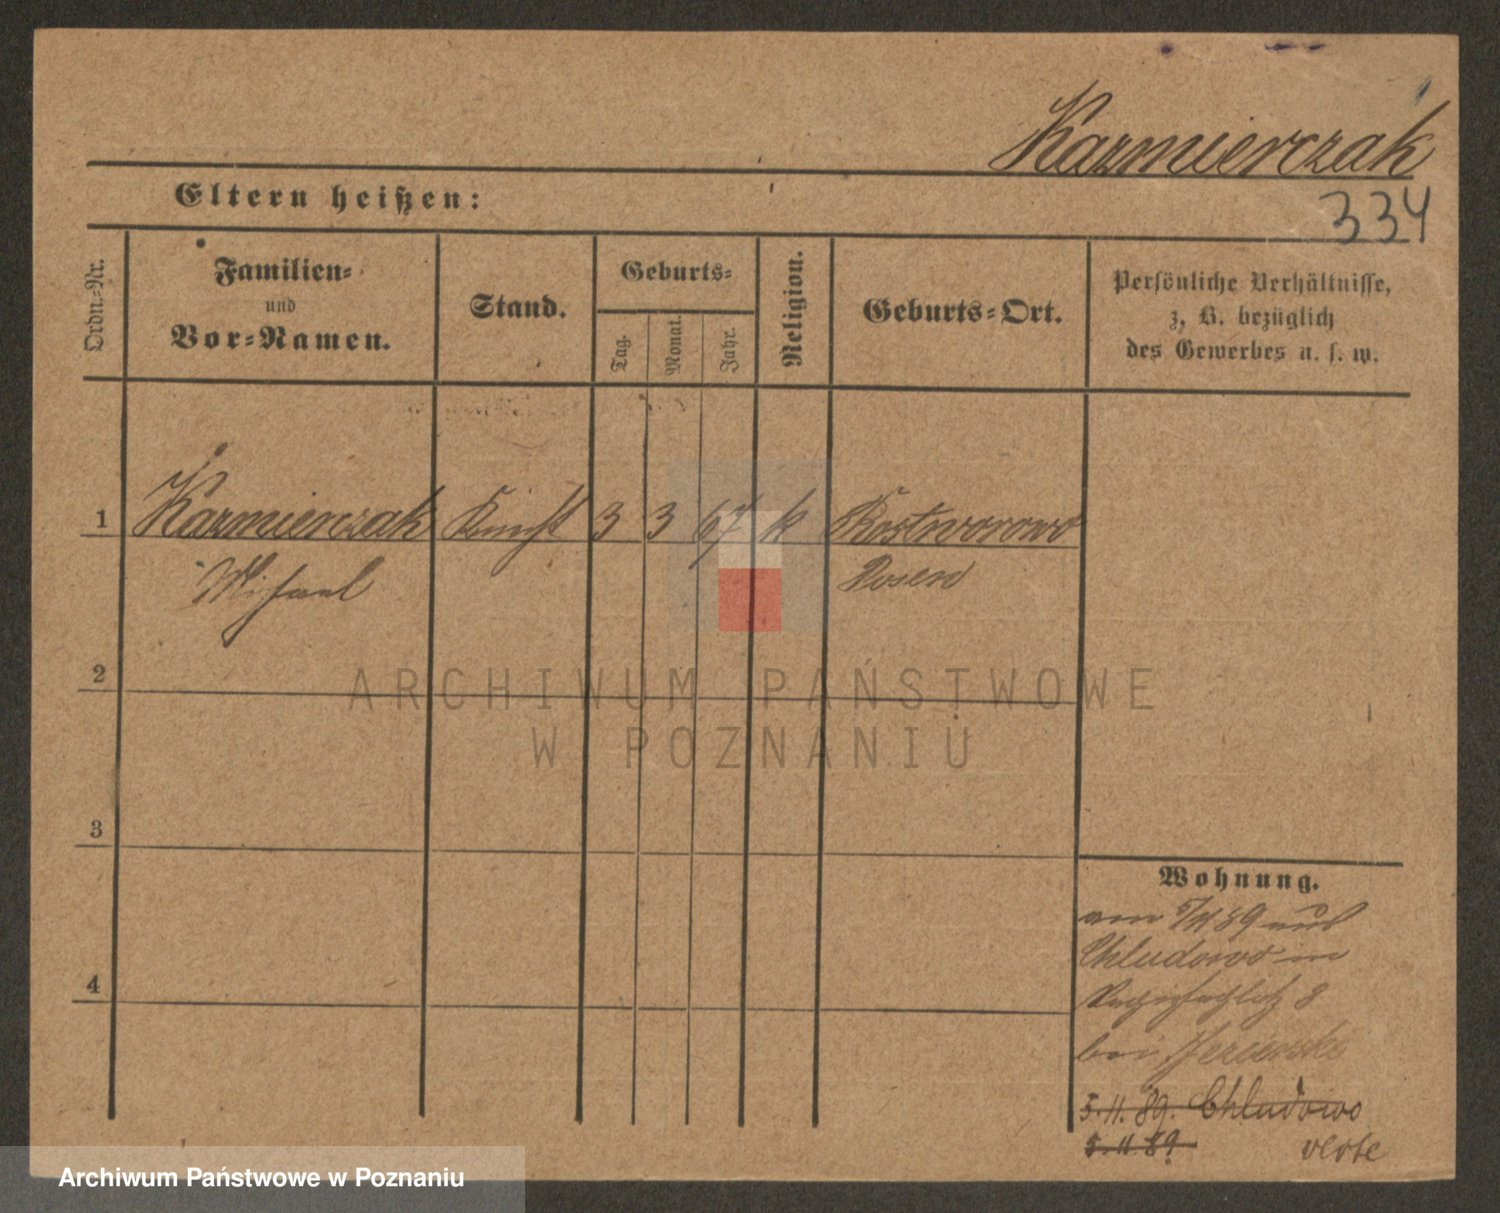 Kazmierczak
334
Eltern heißen:
Ordn.-Nr.
Familien-
und
Vor-Namen.
Stand.
Geburts-
Tag.
Monat.
Jahr.
Religion.
Geburts-Ort.
Persönliche Verhältnisse,
z. B. bezüglich
des Gewerbes u. s. w.
1 Kazmierczak Knecht 3 3 67 k Rostworowo
Michael Posen
2
3
4
ARCHIWUM PAŃSTWOWE
W POZNANIU
Wohnung.
89
Chludowo in
8
bei
5.11.89. Chludowo
5.11.89 verte
Archiwum Państwowe w Poznaniu